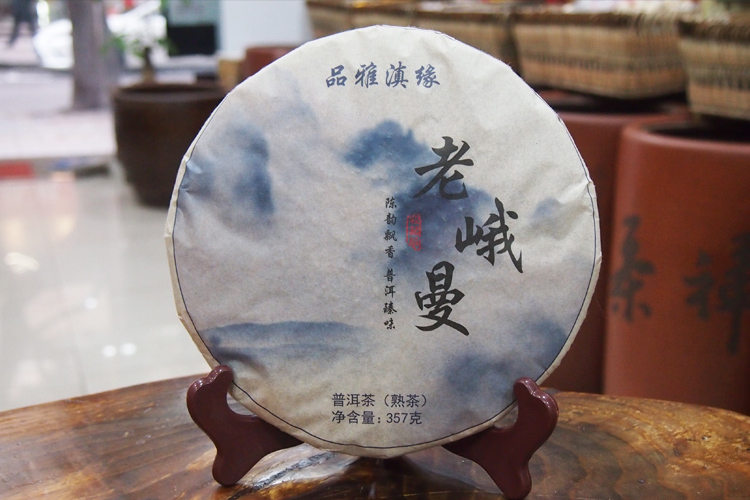 品雅滇缘
老峨曼
陈韵飘香 普洱臻味
普洱茶（熟茶）
净含量：357克
茶禅